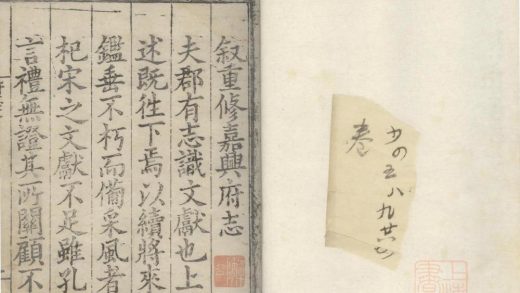 五八九
卷
叙重修嘉興府志
夫郡有志識文獻也上
述既徃下焉以續將來
鑑垂不朽而備采風者
杞宋之文獻不足雖孔
言禮無證其所關顧不